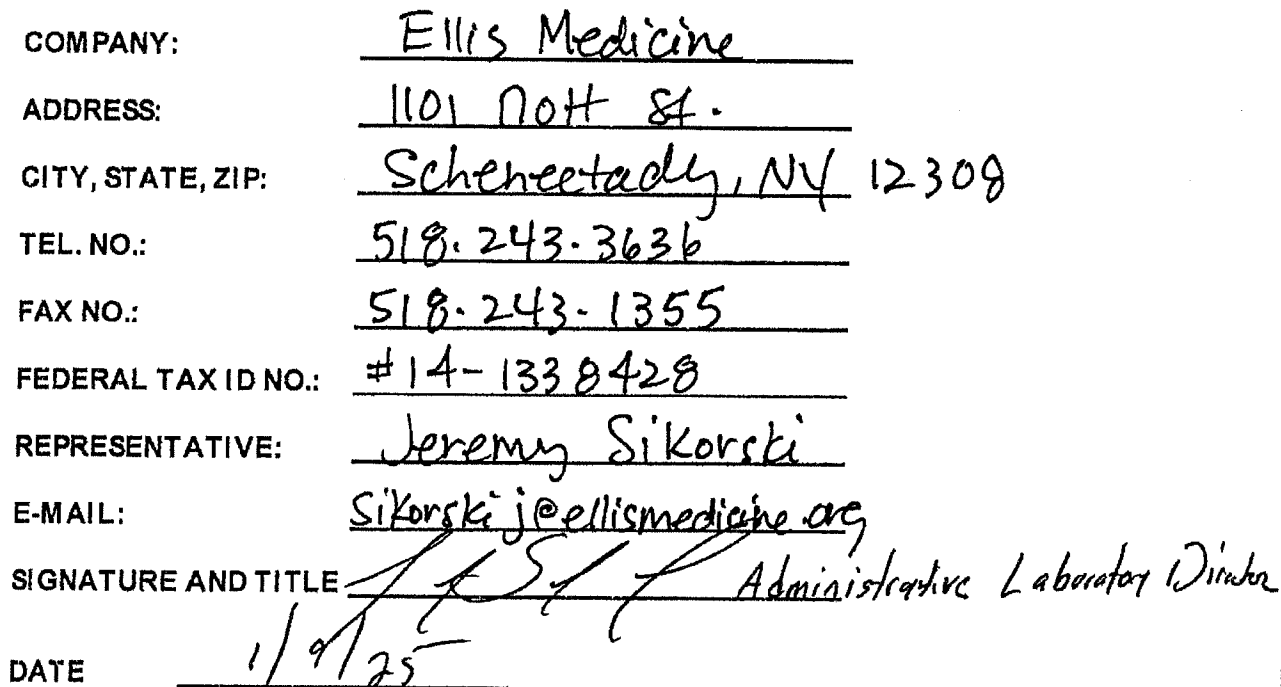 COMPANY: Ellis Medicine
ADDRESS: 1101 Nott St.
CITY, STATE, ZIP: Schenectady, NY 12308
TEL. NO.: 518.243.3636
FAX NO.: 518.243.1355
FEDERAL TAX ID NO.: #14-1338428
REPRESENTATIVE: Jeremy Sikorski
E-MAIL: Sikorskij@ellismedicine.org
SIGNATURE AND TITLE Administrative Laboratory Director
DATE 1/9/25